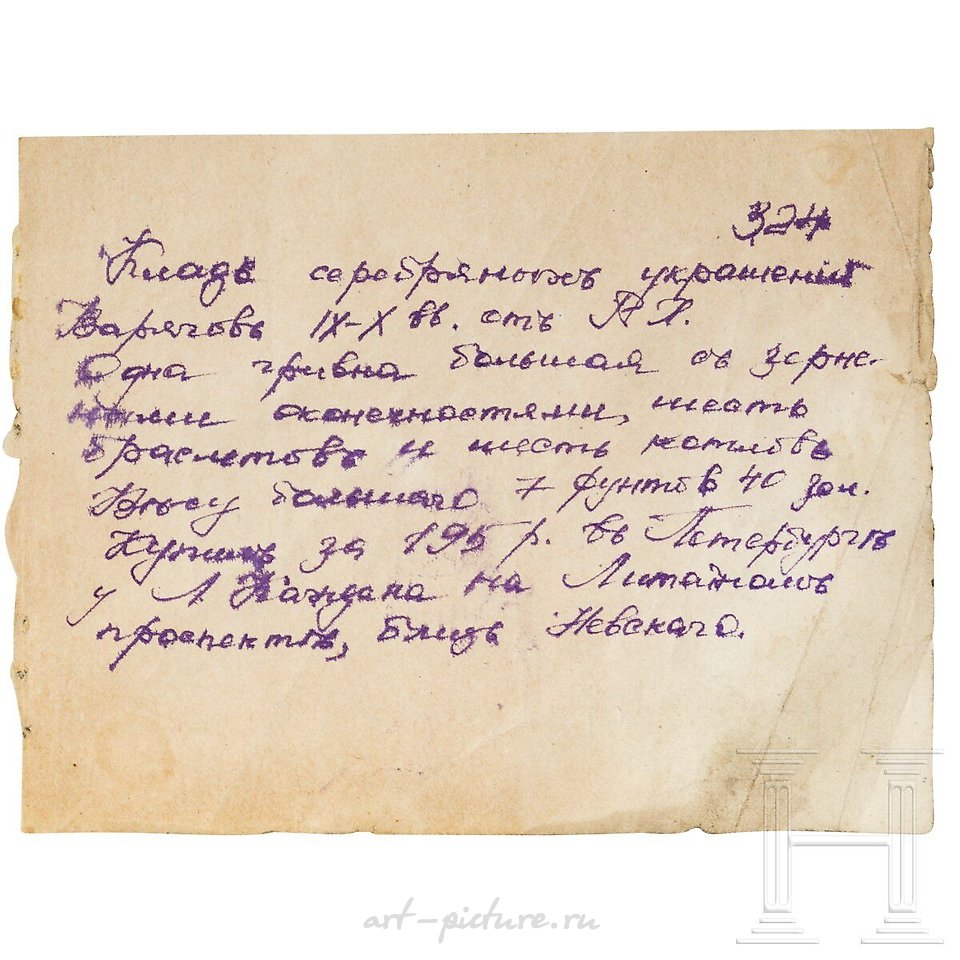 324
Кладъ серебряныхъ украшений
Варяговъ IX-X вв. отъ Р. Х.
Одна гривна большая съ зерне-
ными оконечностями, шесть
браслетовъ и шесть
Вѣсу большаго 7 фунтов 40 зол.
Купилъ за 195 р. въ Петербургѣ
у Л Каждана на Литейномъ
проспектѣ, близъ Невскаго.
art-picture.ru
H